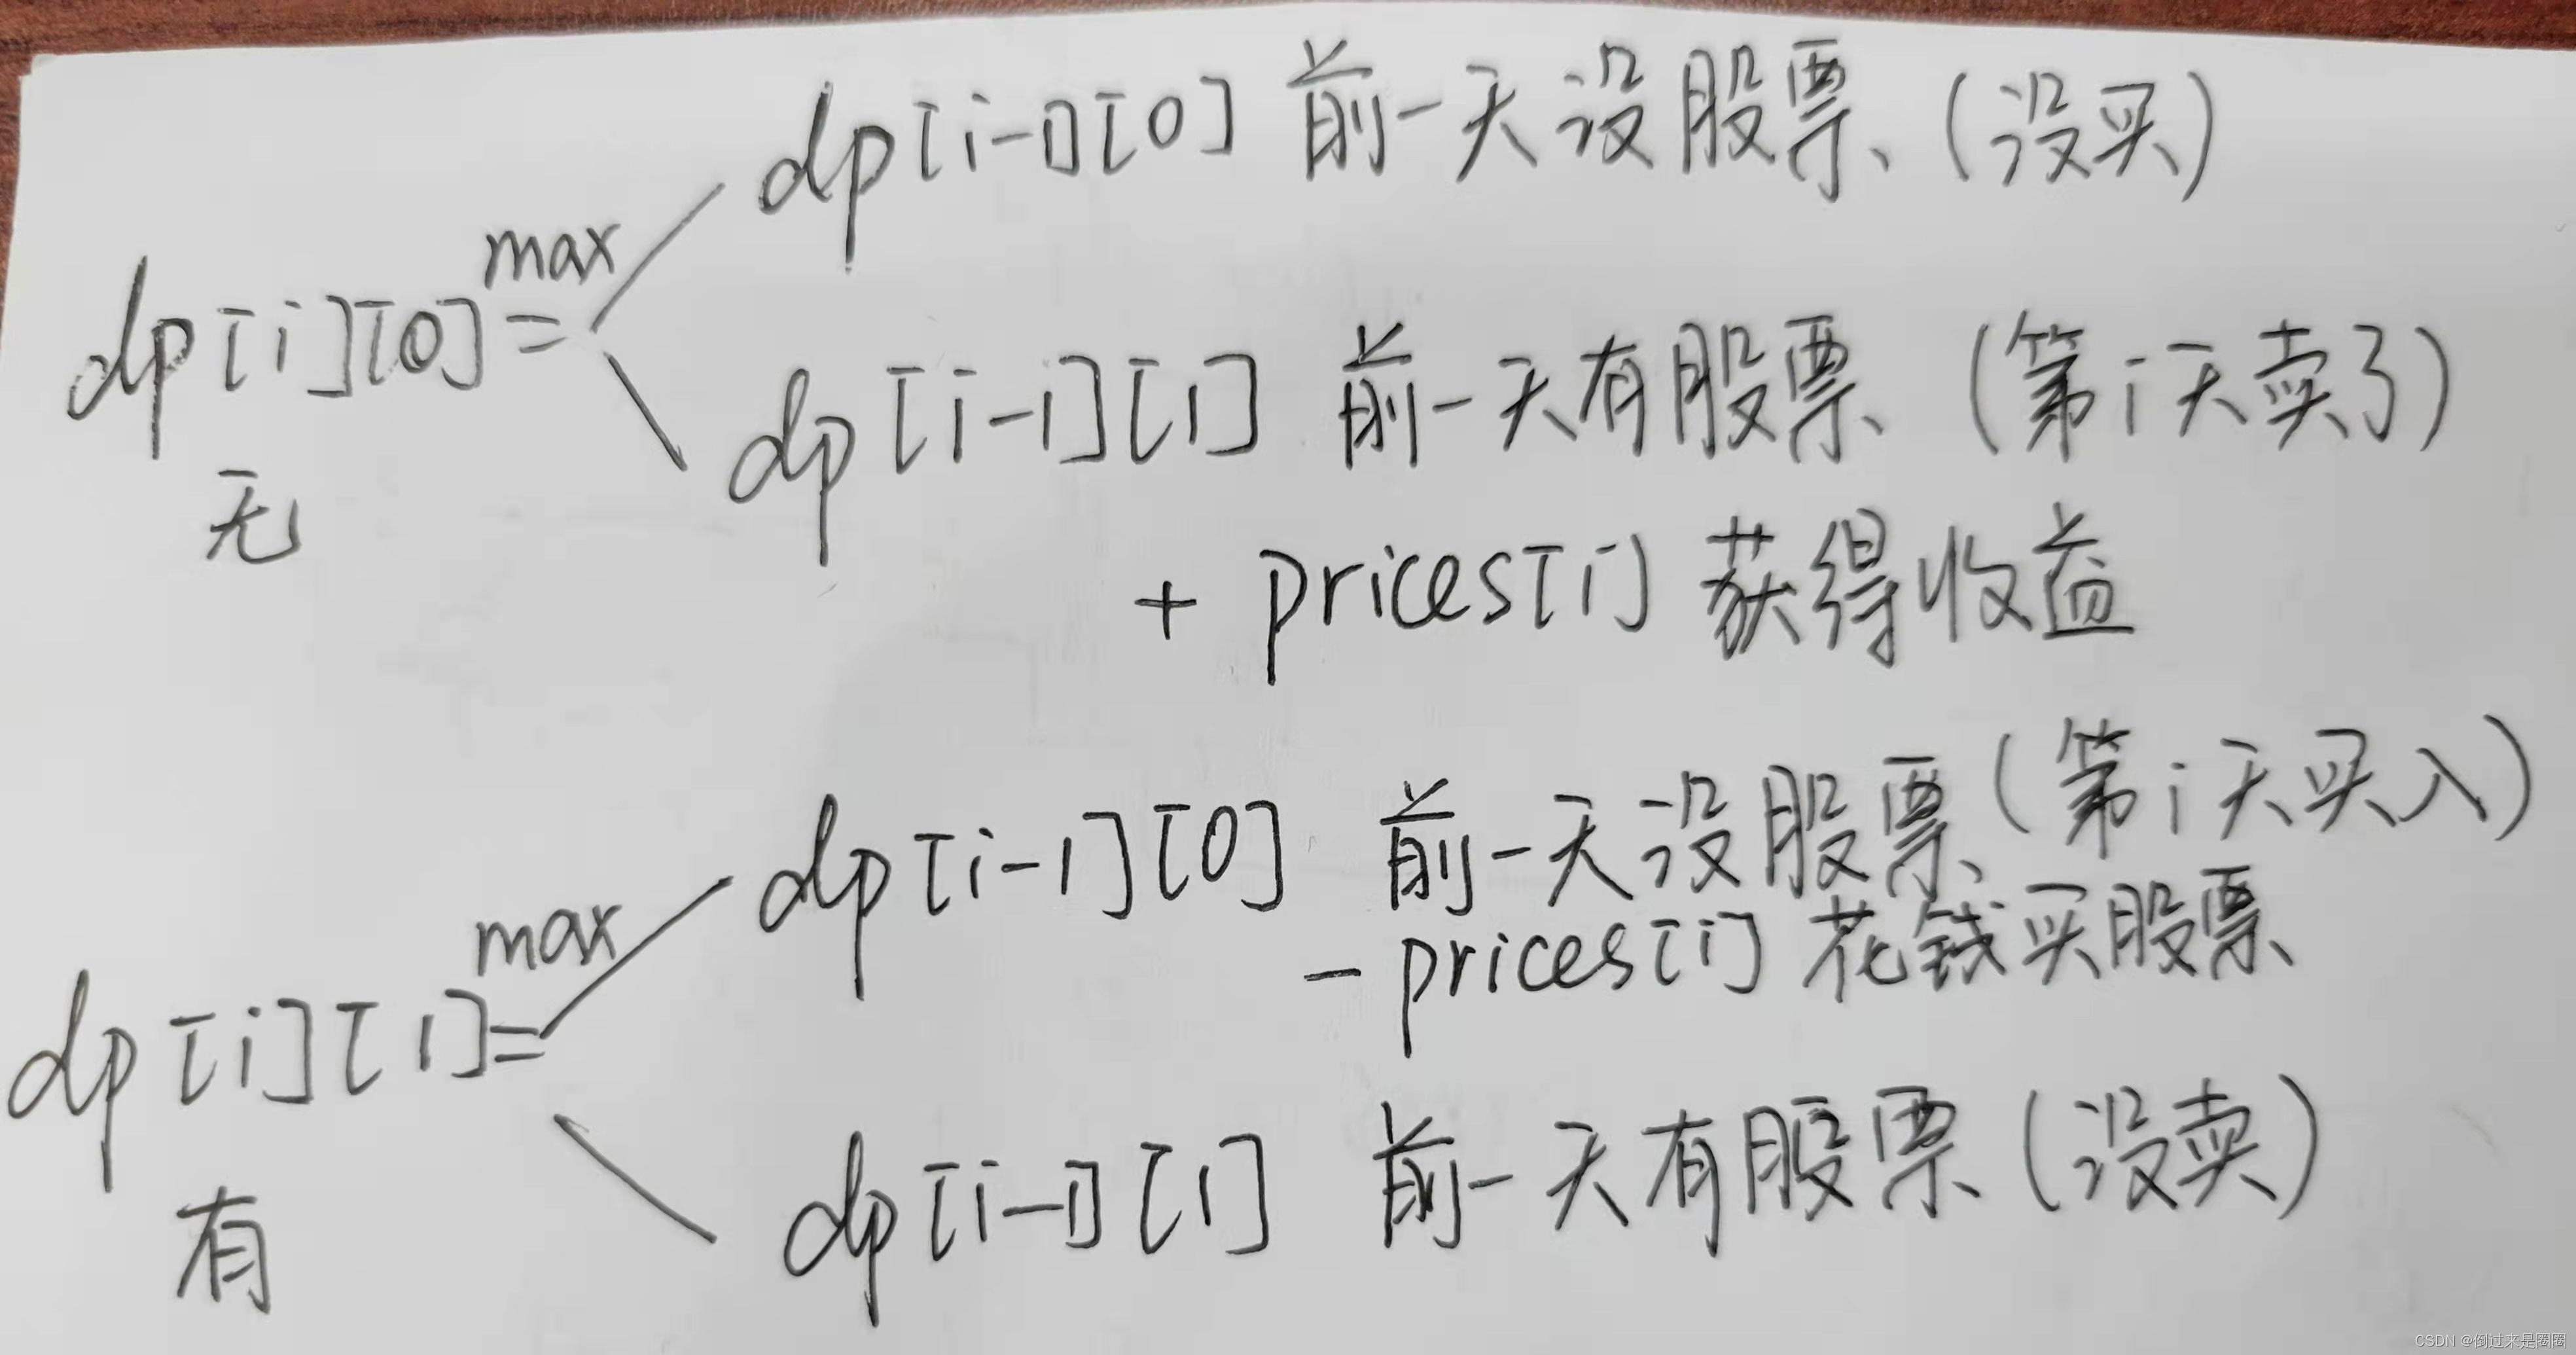 dp[i-1][0] 前一天没股票(没买)
max
dp[i][0]=
无
dp[i-1][1] 前一天有股票(第i天卖了)
+ prices[i] 获得收益
dp[i-1][0] 前一天没股票(第i天买入)
- prices[i] 花钱买股票
max
dp[i][1]=
有
dp[i-1][1] 前一天有股票(没卖)
CSDN @倒过来是圈圈